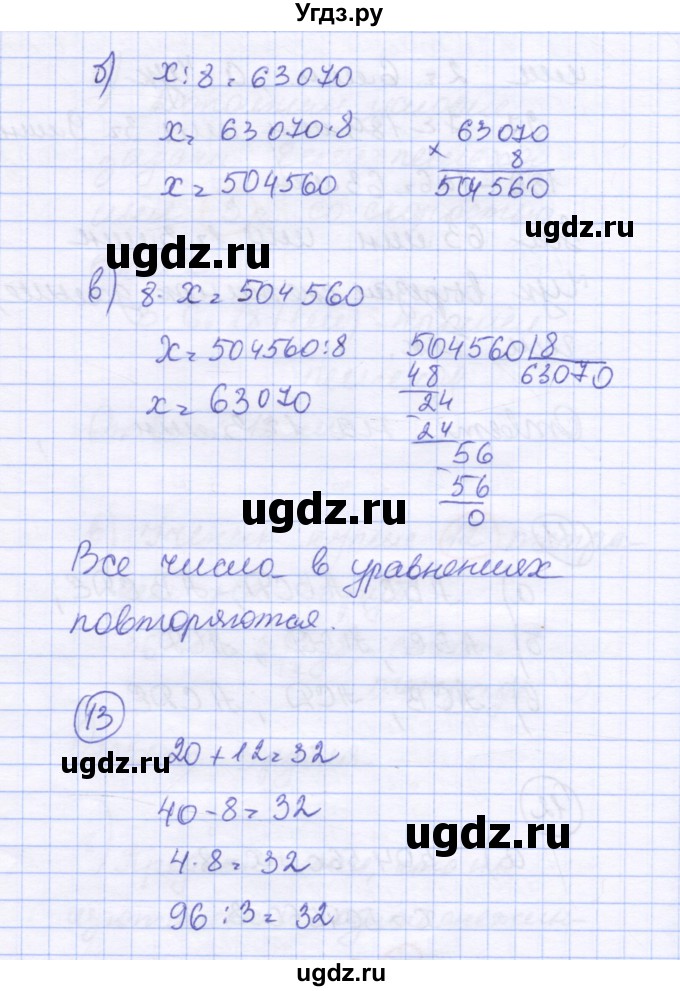 Угдз.ру
б) x:8=63070
x=63070·8
63070
× 8
x=504560
504560
ugdz.ru
ugdz.ru
в) 8·x=504560
x=504560:8
504560|8
48
63070
x=63070
24
24
56
ugdz.ru
56
0
Все числа в уравнениях
повторяются.
13
ugdz.ru
20+12=32
40-8=32
ugdz.ru
4·8=32
96:3=32
ugdz.ru
ugdz.ru